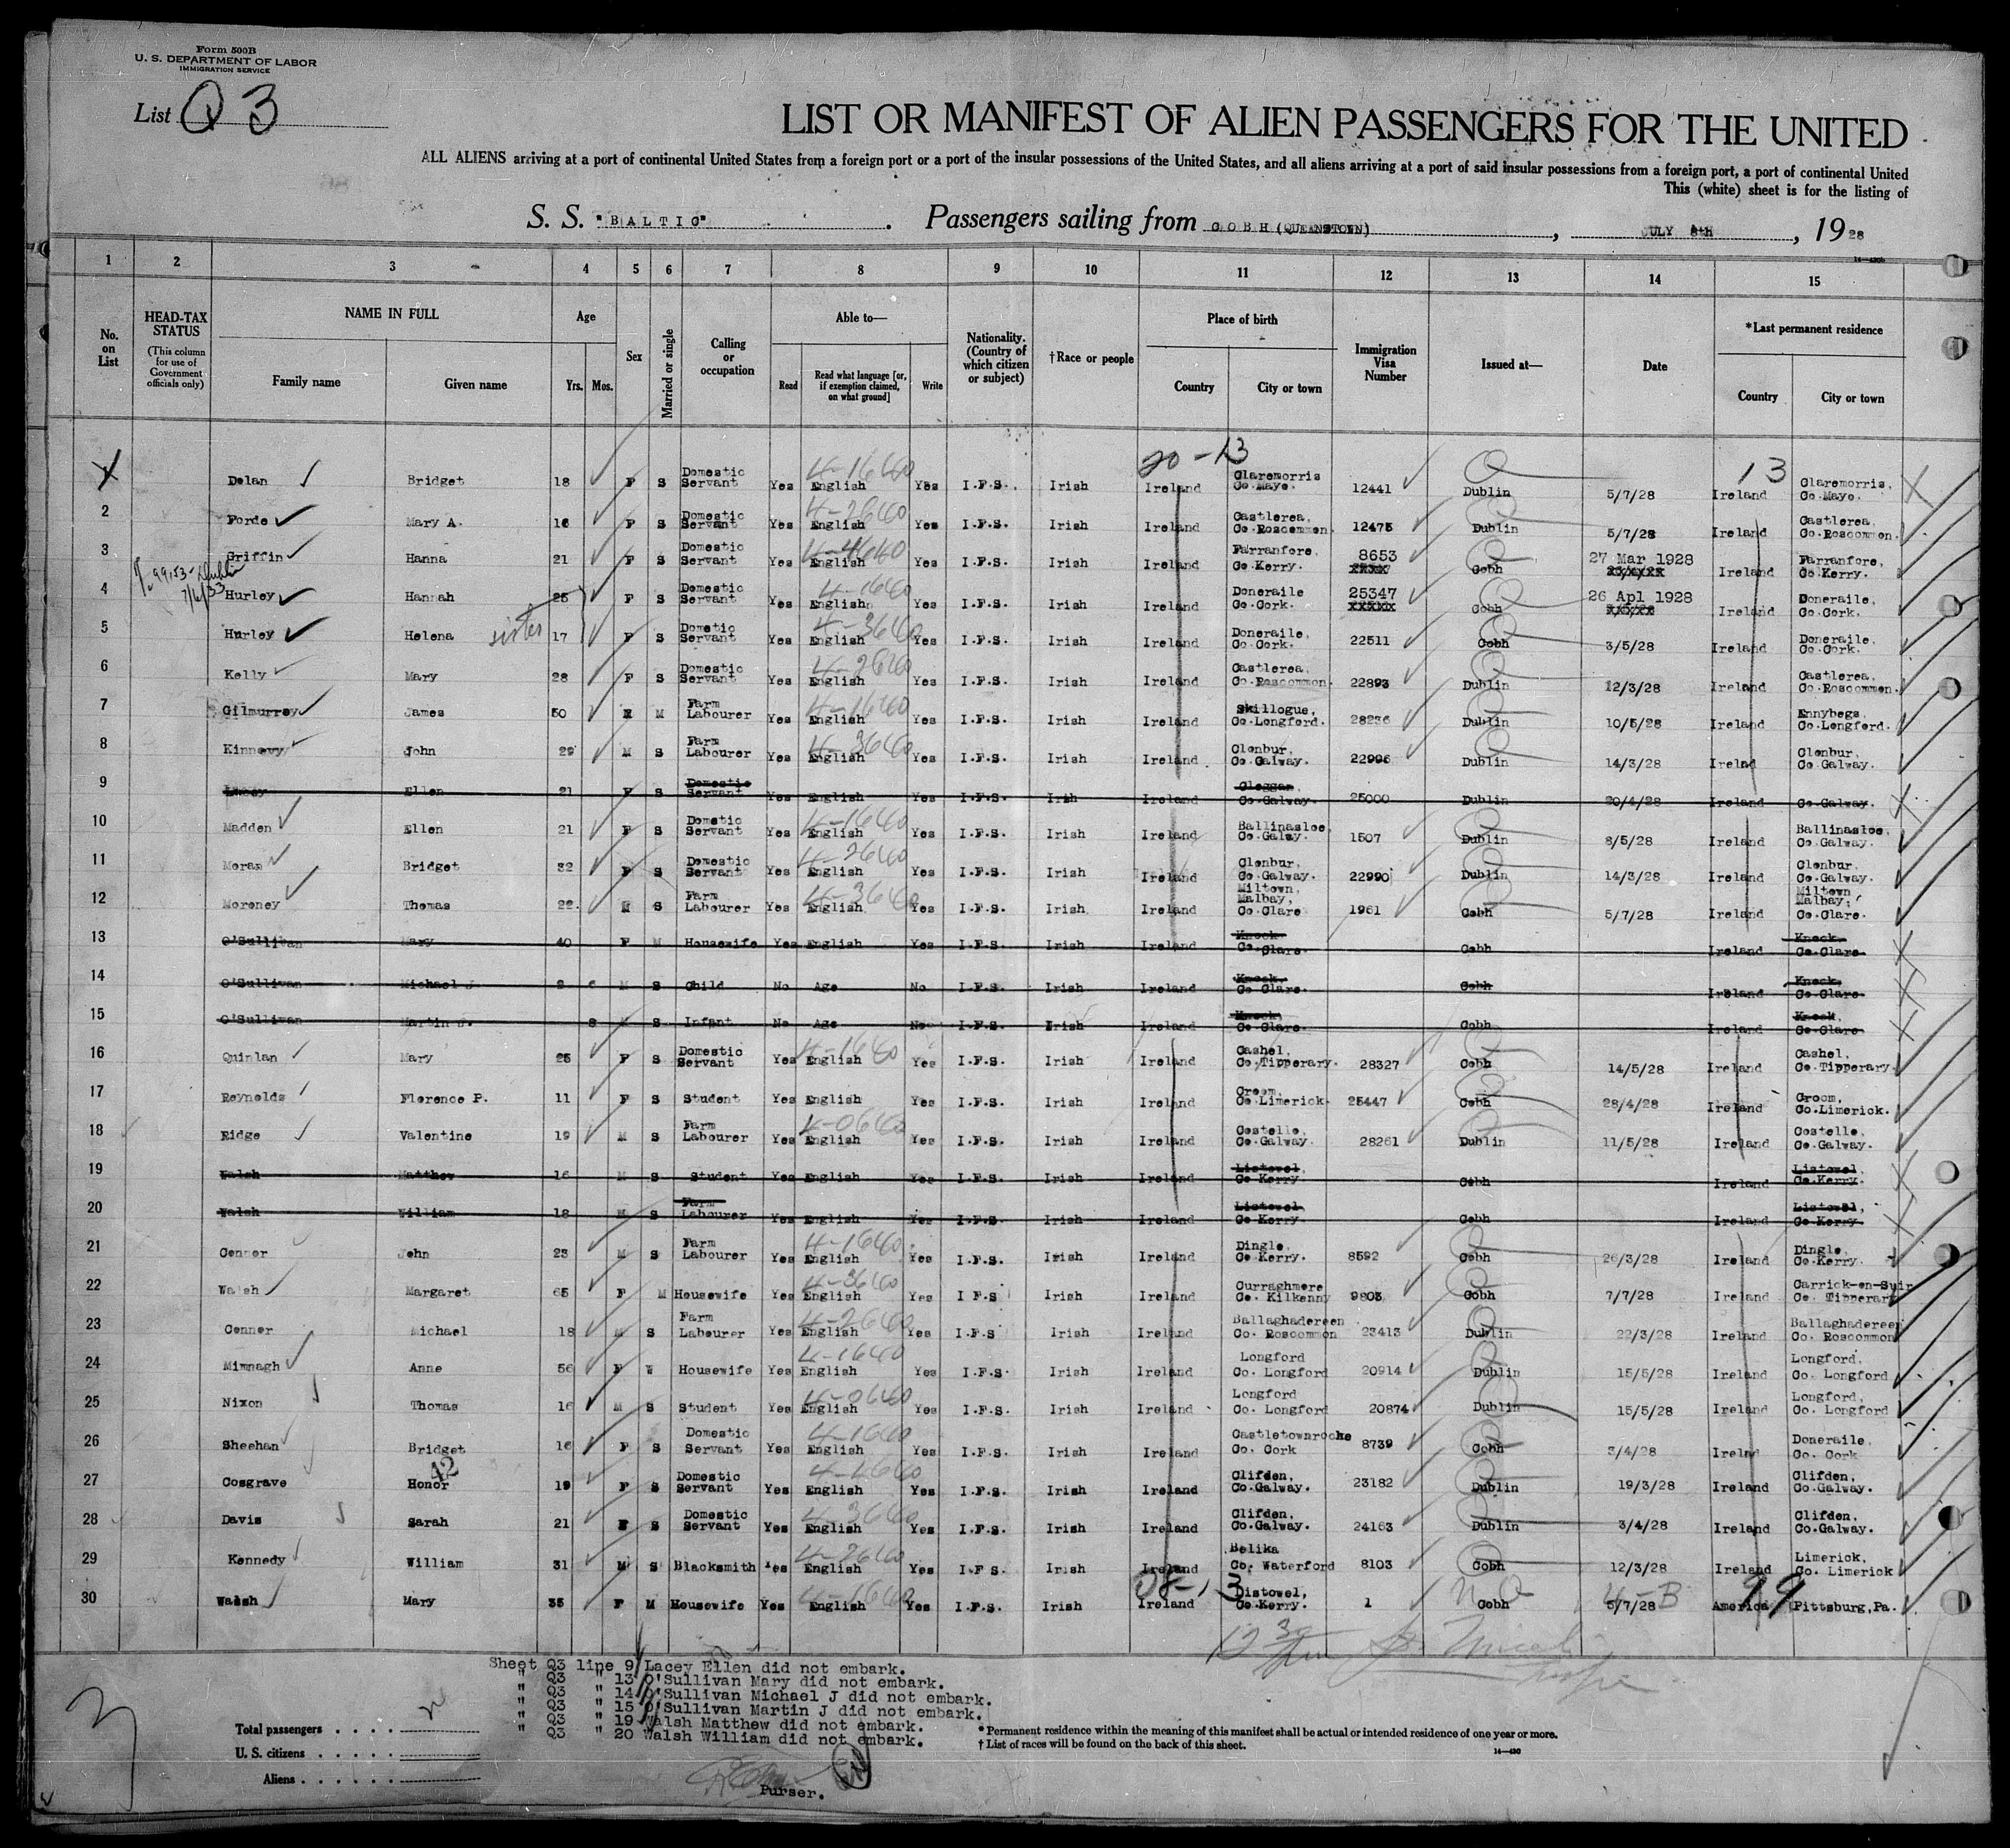 Form 500B
U. S. DEPARTMENT OF LABOR
IMMIGRATION SERVICE
List Q 3
LIST OR MANIFEST OF ALIEN PASSENGERS FOR THE UNITED
ALL ALIENS arriving at a port of continental United States from a foreign port or a port of the insular possessions of the United States, and all aliens arriving at a port of said insular possessions from a foreign port, a port of continental United
This (white) sheet is for the listing of
S. S. "BALTIC". Passengers sailing from COBH (QUEENSTOWN), JULY 8TH, 1928
14—430b
1 2 3 4 5 6 7 8 9 10 11 12 13 14 15
No. on List
HEAD-TAX STATUS
(This column for use of Government officials only)
NAME IN FULL
Family name Given name
Age
Yrs. Mos.
Sex
Married or single
Calling or occupation
Able to—
Read Read what language [or, if exemption claimed, on what ground] Write
Nationality. (Country of which citizen or subject)
†Race or people
Place of birth
Country City or town
Immigration Visa Number
Issued at—
Date
*Last permanent residence
Country City or town
20-13 13
Dolan Bridget 18 F S Domestic Servant Yes English Yes I.F.S. Irish Ireland Claremorris Co.Mayo. 12441 Dublin 5/7/28 Ireland Claremorris, Co.Mayo. 4-1640
2 Forde Mary A. 16 F S Domestic Servant Yes English Yes I.F.S. Irish Ireland Castlerea, Co Roscommon. 12475 Dublin 5/7/28 Ireland Castlerea, Co.Roscommon. 4-2640
3 Griffin Hanna 21 F S Domestic Servant Yes English Yes I.F.S. Irish Ireland Farranfore, Co Kerry. 8653 Cobh 27 Mar 1928 Ireland Farranfore, Co Kerry. 4-4640
99153-Dublin 7/6/33
4 Hurley Hannah 25 F S Domestic Servant Yes English Yes I.F.S. Irish Ireland Doneraile Co.Cork. 25347 Cobh 26 Apl 1928 Ireland Doneraile, Co.Cork. 4-1640
5 Hurley Helena sister 17 F S Dometic Servant Yes English Yes I.F.S. Irish Ireland Doneraile, Co Cork. 22511 Cobh 3/5/28 Ireland Doneraile, Co Cork. 4-3640
6 Kelly Mary 28 F S Domestic Servant Yes English Yes I.F.S. Irish Ireland Castlerea, Co Roscommon. 22893 Dublin 12/3/28 Ireland Castlerea, Co Roscommon. 4-2640
7 Gilmurrey James 50 M M Farm Labourer Yes English Yes I.F.S. Irish Ireland Skillogue, Co Longford. 28236 Dublin 10/5/28 Ireland Ennybegs, Co Longford. 4-1640
8 Kinnevy John 29 M S Farm Labourer Yes English Yes I.F.S. Irish Ireland Clonbur, Co Galway. 22996 Dublin 14/3/28 Irelad Clonbur, Co Galway. 4-3640
9 Lacey Ellen 21 F S Domestic Servant Yes English Yes I.F.S. Irih Ireland Cleggan, Co Galway. 25000 Dublin 20/4/28 Ireland Co Galway.
10 Madden Ellen 21 F S Dometic Servant Yes English Yes I.F.S. Irish Ireland Ballinasloe, Co.Galwy. 1507 Dublin 8/5/28 Ireland Ballinasloe, Co Galway. 4-1640
11 Moran Bridget 32 F S Domestic Servant Yes English Yes I.F.S. Irish Ireland Clonbur, Co Galway. 22990 Dublin 14/3/28 Ireland Clonbur, Co Galway. 4-2640
12 Moroney Thomas 22 M S Farm Labourer Yes English Yes I.F.S. Irish Ireland Miltown, Malbay, Co Clare 1961 Cobh 5/7/28 Ireland Miltown Malbay, Co Clare. 4-3640
13 O'Sullivan Mary 40 F M Housewife Yes English Yes I.F.S Irish Ireland Knock Co. Clare. Cobh Ireland Knock, Co Clare
14 O'Sullivan Michael J. 2 6 M S Child No Age No I.F.S Irish Ireland Knock, Co Clare. Cobh Ireland Knock, Co Clare
15 O'Sullivan Martin J. 8 M S Infant No Age No I.F.S. Irish Ireland Knock, Co Clare. Cobh Ireland Knock, Co Clare
16 Quinlan Mary 25 F S Domestic Servant Yes English Yes I.F.S. Irish Ireland Cashel, Co Tipperary. 28327 Cobh 14/5/28 Ireland Cashel, Co Tipperary. 4-1640
17 Reynolds Florence P. 11 F S Student Yes English Yes I.F.S. Irish Ireland Croom, Co Limerick. 25447 Cobh 28/4/28 Ireland Croom, Co.Limerick.
18 Ridge Valentine 19 M S Farm Labourer Yes English Yes I.F.S. Irish Ireland Costello, Co Galway. 28261 Dublin 11/5/28 Ireland Costello, Co Galway. 4-0640
19 Walsh Matthew 16 M S Student Yes English Yes I.F.S. Irish Ireland Listowel, Co Kerry Cobh Ireland Listowel, Co Kerry.
20 Walsh William 18 M S Farm Labourer Yes English Yes I.F.S Irish Ireland Listowel, Co Kerry. Cobh Ireland Listowel, Co Kerry
21 Connor John 23 M S Farm Labourer Yes English Yes I.F.S. Irish Ireland Dingle, Co Kerry. 8592 Cobh 26/3/28 Ireland Dingle, Co Kerry. 4-1640
22 Walsh Margaret 65 F M Housewife Yes English Yes I F.S Irish Ireland Curraghmore Co. Kilkenny 9803 Cobh 7/7/28 Ireland Carrick-on-Suir Co. Tipperary 4-3640
23 Connor Michael 18 M S Farm Labourer Yes English Yes I.F.S Irish Ireland Ballaghadereen Co. Roscommon 23413 Dublin 22/3/28 Ireland Ballaghadereen Co. Roscommon 4-2640
24 Mimnagh Anne 56 F W Housewife Yes English Yes I.F.S. Irish Ireland Longford Co. Longford 20914 Dublin 15/5/28 Ireland Longford, Co. Longford 4-1640
25 Nixon Thomas 16 M S Student Yes English Yes I.F.S. Irish Ireland Longford Co. Longford 20874 Dublin 15/5/28 Ireland Longford, Co. Longford 4-0640
26 Sheehan Bridget 16 F S Domestic Servant Yes English Yes I.F.S. Irish Ireland Castletownroche Co. Cork 8739 Cobh 3/4/28 Irelnd Doneraile, Co. Cork 4-1640
27 Cosgrave Honor 42 19 F S Domestic Servant Yes English Yes I.F.S. Irish Ireland Clifden, Co.Galway. 23182 Dublin 19/3/28 Ireland Clifden, Co.Galway.
28 Davis Sarah 21 F S Domestic Servant Yes English Yes I.F.S. Irish Ireland Clifden, Co.Galway. 24163 Dublin 3/4/28 Ireland Clifden, Co.Galway. 4-3640
29 Kennedy William 31 M S Blacksmith Yes English Yes I.F S. Irish Ireland Belika Co. Waterford 8103 Cobh 12/3/28 Ireland Limerick, Co. Limerick 4-2640
30 Walsh Mary 35 F M Housewife Yes English Yes I.F.S. Irish Ireland Listowel, Co Kerry. 1 Cobh 5/7/28 America Pittsburg,Pa. 4-1640 4-B 99
Sheet Q3 line 9 Lacey Ellen did not embark.
" Q3 " 13 O'Sullivan Mary did not embark.
" Q3 " 14 O'Sullivan Michael J did not embark.
" Q3 " 15 O'Sullivan Martin J did not embark.
" Q3 " 19 Walsh Matthew did not embark.
" Q3 " 20 Walsh William did not embark.
Total passengers
U. S. citizens
Aliens
Purser.
* Permanent residence within the meaning of this manifest shall be actual or intended residence of one year or more.
† List of races will be found on the back of this sheet.
14—430